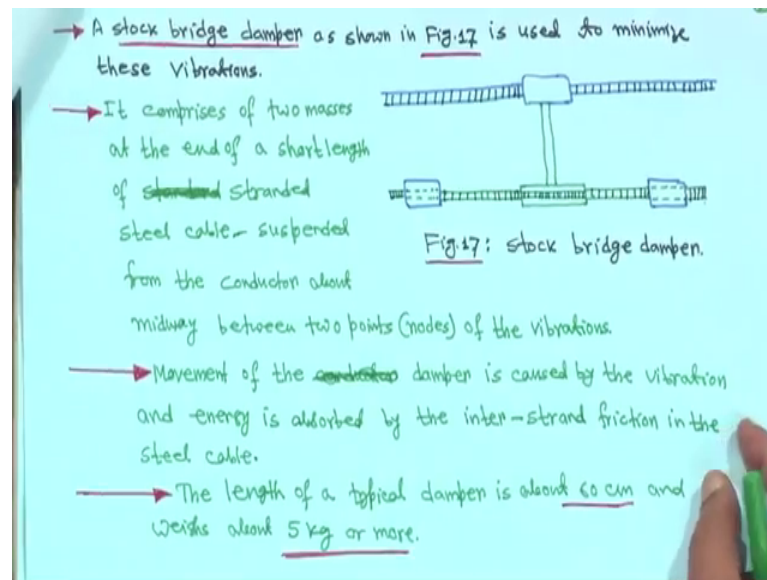 A stock bridge damper as shown in Fig.17 is used to minimize
these vibrations.
It comprises of two masses
at the end of a short length
of stranded
steel cable - suspended
from the conductor about
midway between two points (nodes) of the vibrations.
Fig.17: stock bridge damper.
Movement of the damper is caused by the vibration
and energy is absorbed by the inter-strand friction in the
steel cable.
The length of a typical damper is about 60 cm and
weighs about 5 kg or more.